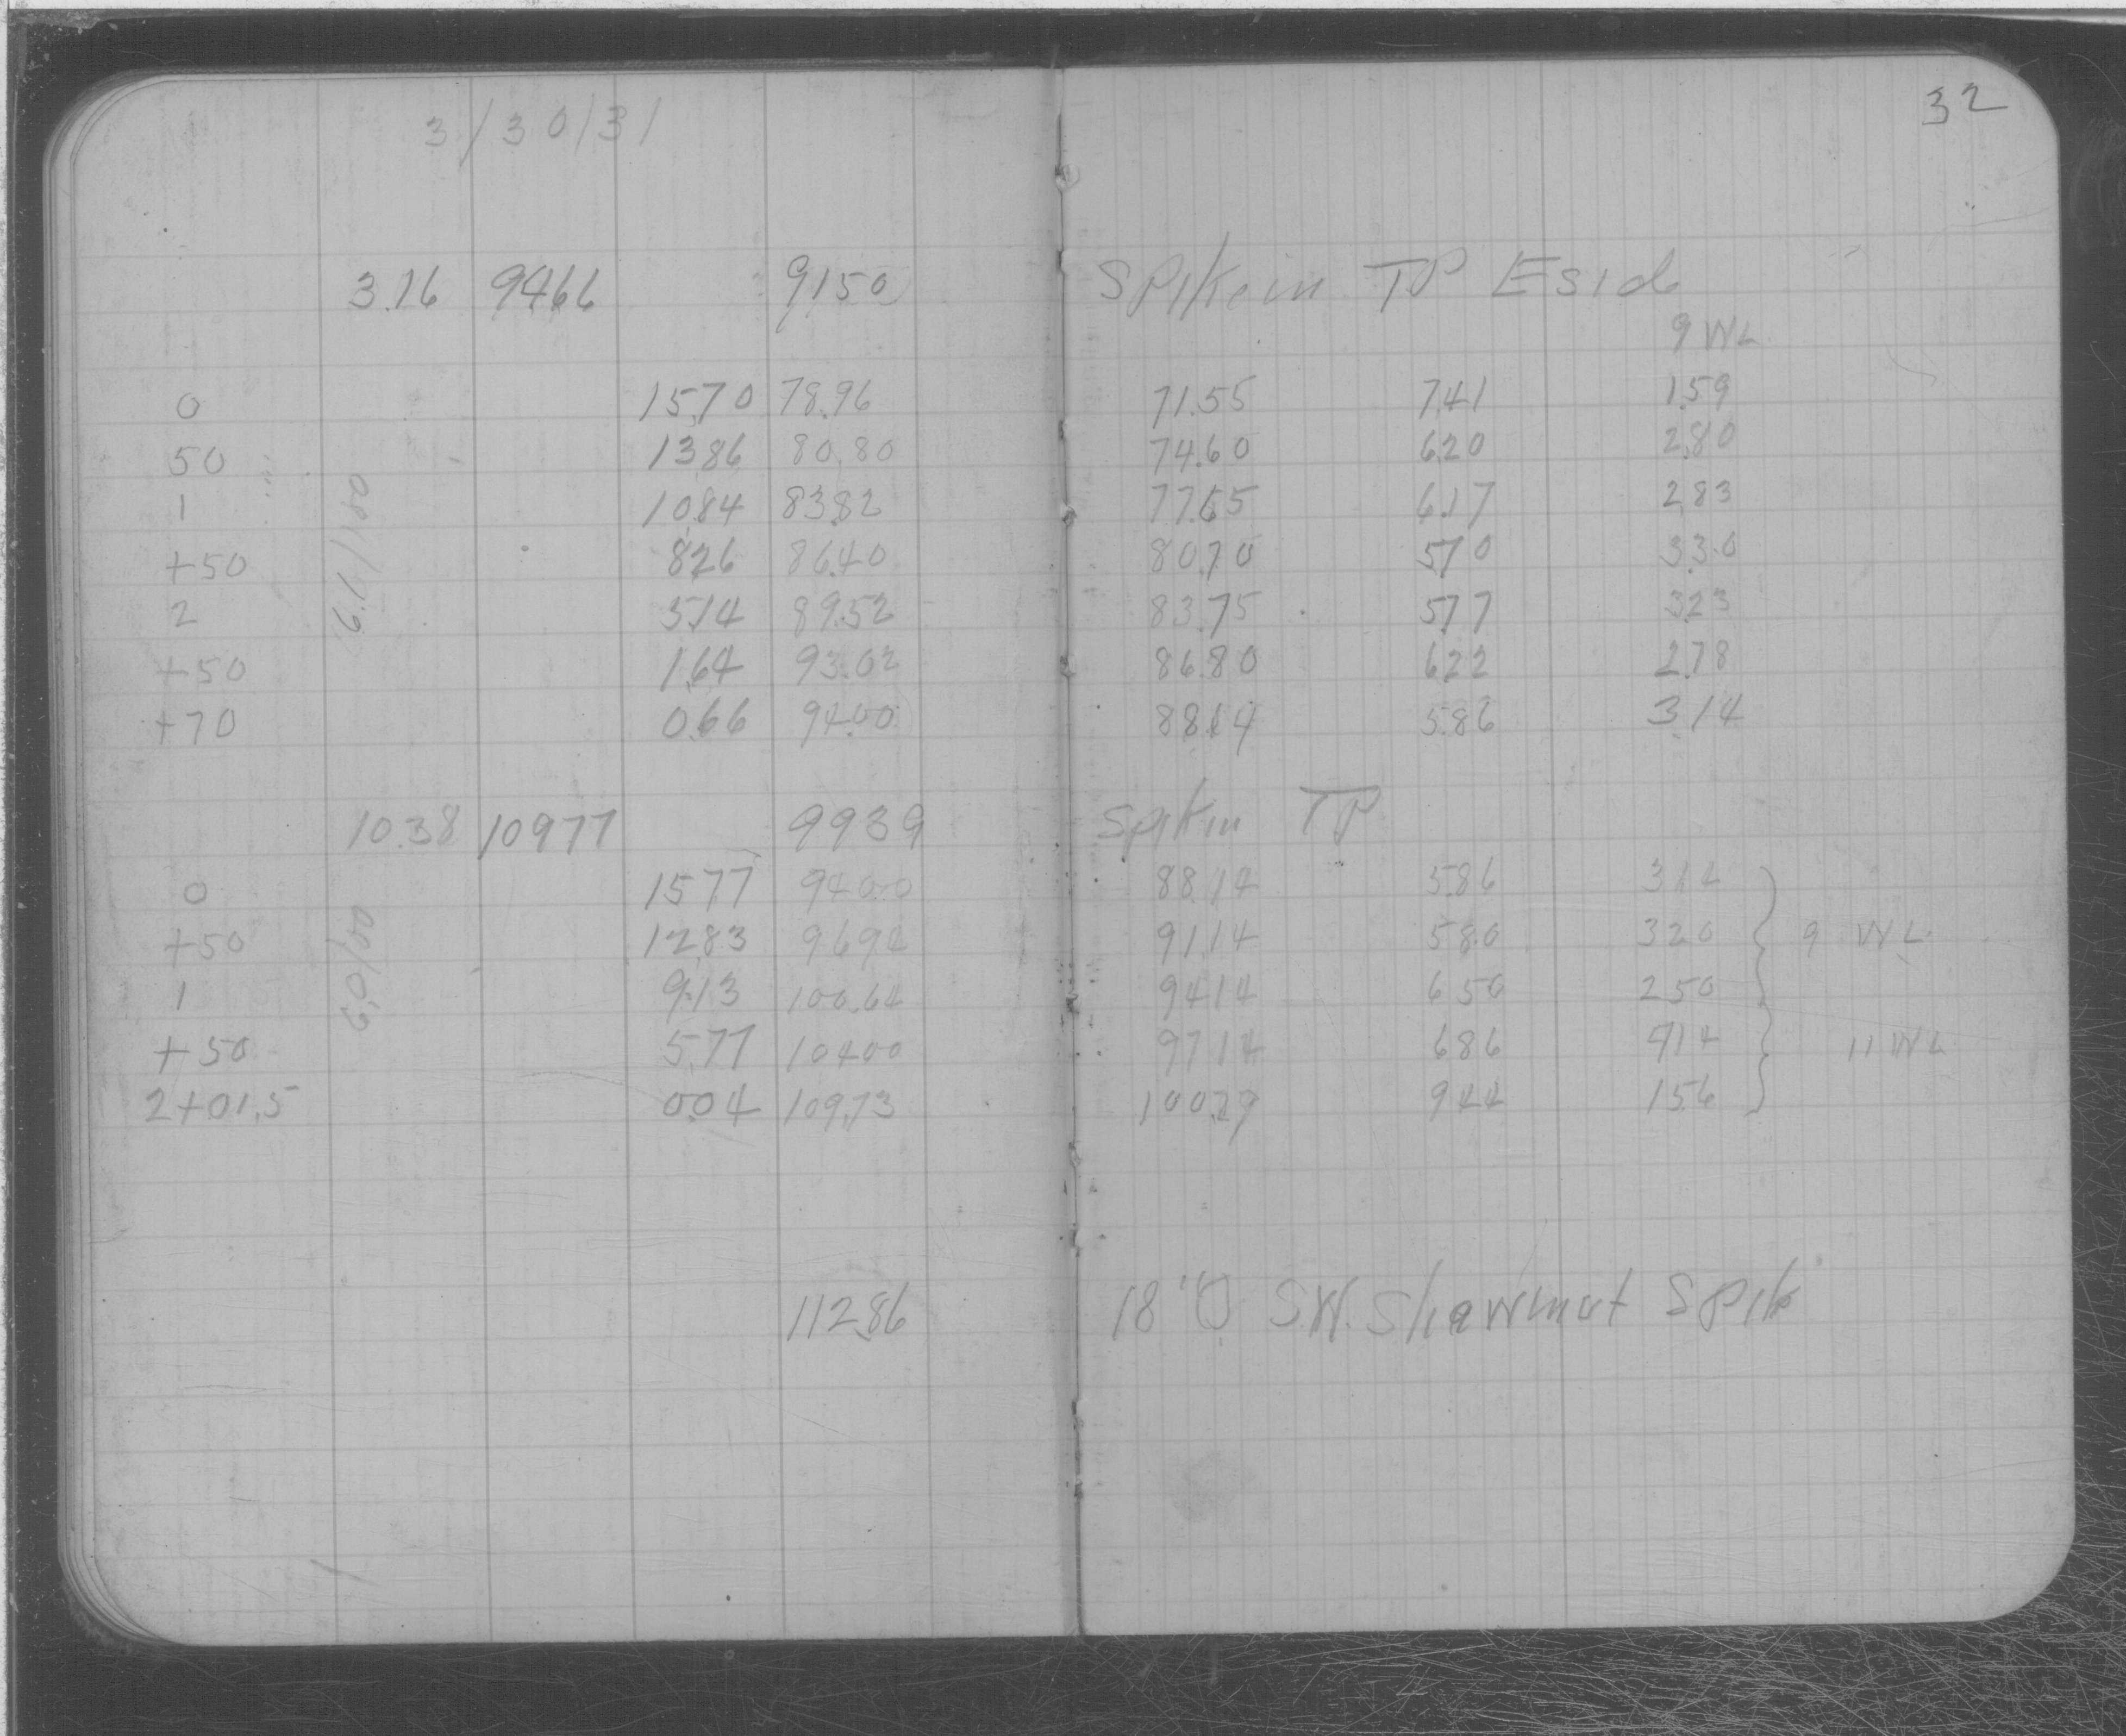 32
3/30/31
3.16 9466 9150 Spike in TP E side
9 WL
0 15.70 78.96 71.55 7.41 1.59
50 1386 80.80 74.60 6.20 2.80
1 10.84 83.82 77.65 6.17 2.83
+50 8.26 86.40 80.70 5.70 3.30
2 5.14 89.52 83.75 5.77 3.23
+50 1.64 93.02 86.80 6.22 2.78
+70 0.66 94.00 88.14 5.86 3.14
6.1/100
10.38 10977 9939 Spik in TP
0 15.77 94.00 88.14 5.86 3.14
+50 12.83 96.94 91.14 5.80 3.20
1 9.13 100.64 94.14 6.50 2.50
+50 5.77 104.00 97.14 6.86 4.14
2+01.5 0.04 109.73 100.29 9.44 1.56
6.0/00
9 WL
11 WL
112.86 18"O S.W. Shawmut Spik